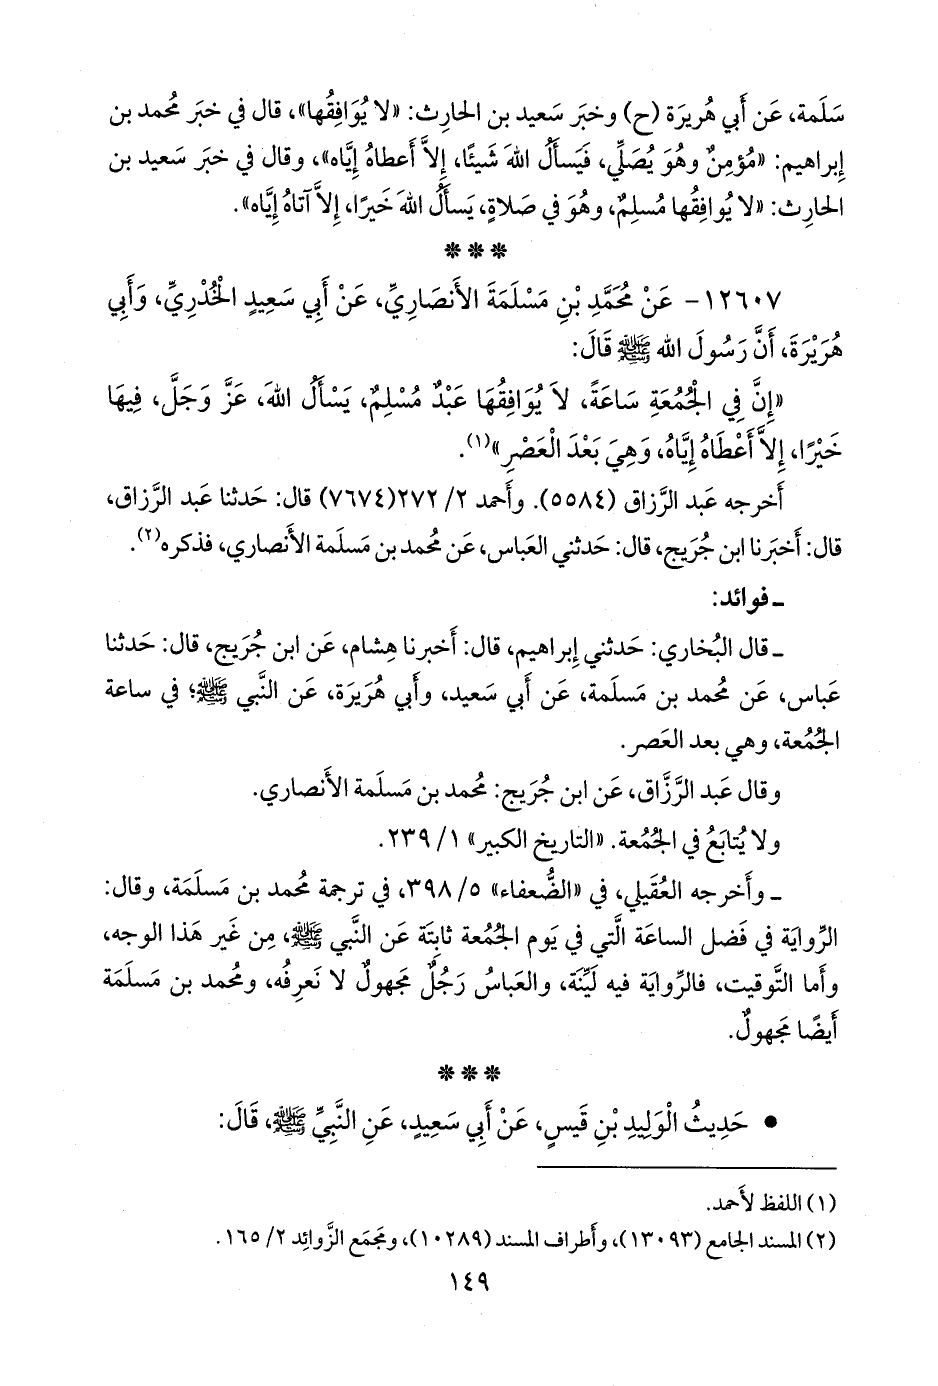 سَلَمة، عَن أَبي هُريرَة (ح) وخبَر سَعيد بن الحارِث: «لا يُوَافِقُها»، قال في خبَر مُحمد بن
إِبراهيم: «مُؤمِنٌ وهُوَ يُصَلِّي، فَيَسأَلُ اللهَ شَيئًا، إِلاَّ أَعطاهُ إِيَّاه»، وقال في خبَر سَعيد بن
الحارِث: «لا يُوافِقُها مُسلِمٌ، وهُوَ في صَلاةٍ، يَسأَلُ اللهَ خَيرًا، إِلاَّ آتاهُ إِيَّاه».
* * *
١٢٦٠٧- عَنْ مُحَمَّدِ بْنِ مَسْلَمَةَ الأَنصَارِيِّ، عَنْ أَبِي سَعِيدٍ الْخُدْرِيِّ، وَأَبِي
هُرَيْرَةَ، أَنَّ رَسُولَ الله ﷺ قَالَ:
«إِنَّ فِي الْجُمُعَةِ سَاعَةً، لاَ يُوَافِقُهَا عَبْدٌ مُسْلِمٌ، يَسْأَلُ اللهَ، عَزَّ وَجَلَّ، فِيهَا
خَيْرًا، إِلاَّ أَعْطَاهُ إِيَّاهُ، وَهِيَ بَعْدَ الْعَصْرِ»(١).
أَخرجه عَبد الرَّزاق (٥٥٨٤). وأَحمد ٢/ ٢٧٢(٧٦٧٤) قال: حَدثنا عَبد الرَّزاق،
قال: أَخبَرنا ابن جُرَيج، قال: حَدثني العَباس، عَن مُحمد بن مَسلَمة الأَنصاري، فذكره(٢).
ـ فوائد:
ـ قال البُخاري: حَدثني إِبراهيم، قال: أَخبرنا هِشام، عَن ابن جُرَيج، قال: حَدثنا
عَباس، عَن مُحمد بن مَسلَمة، عَن أَبي سَعيد، وأَبي هُرَيرَة، عَن النَّبي ﷺ؛ في ساعة
الجُمُعة، وهي بعد العَصر.
وقال عَبد الرَّزَّاق، عَن ابن جُرَيج: مُحمد بن مَسلَمة الأَنصاري.
ولا يُتابَعُ في الجُمُعة. «التاريخ الكبير» ١/ ٢٣٩.
ـ وأَخرجه العُقَيلي، في «الضُّعفاء» ٥/ ٣٩٨، في ترجمة مُحمد بن مَسلَمَة، وقال:
الرِّواية في فَضل الساعَة الَّتي في يَوم الجُمُعة ثابِتَة عَن النَّبي ﷺ، مِن غَير هَذا الوجه،
وأَما التَّوقيت، فالرِّوايَة فيه لَيِّنَة، والعَباسُ رَجُلٌ مَجهولٌ لا نَعرِفُه، ومُحمد بن مَسلَمَة
أَيضًا مَجهولٌ.
* * *
• حَدِيثُ الْوَلِيدِ بْنِ قَيسٍ، عَنْ أَبِي سَعِيدٍ، عَنِ النَّبِيِّ ﷺ، قَالَ:
(١) اللفظ لأَحمد.
(٢) المسند الجامع (١٣٠٩٣)، وأَطراف المسند (١٠٢٨٩)، ومَجمَع الزَّوائِد ٢/ ١٦٥.
١٤٩